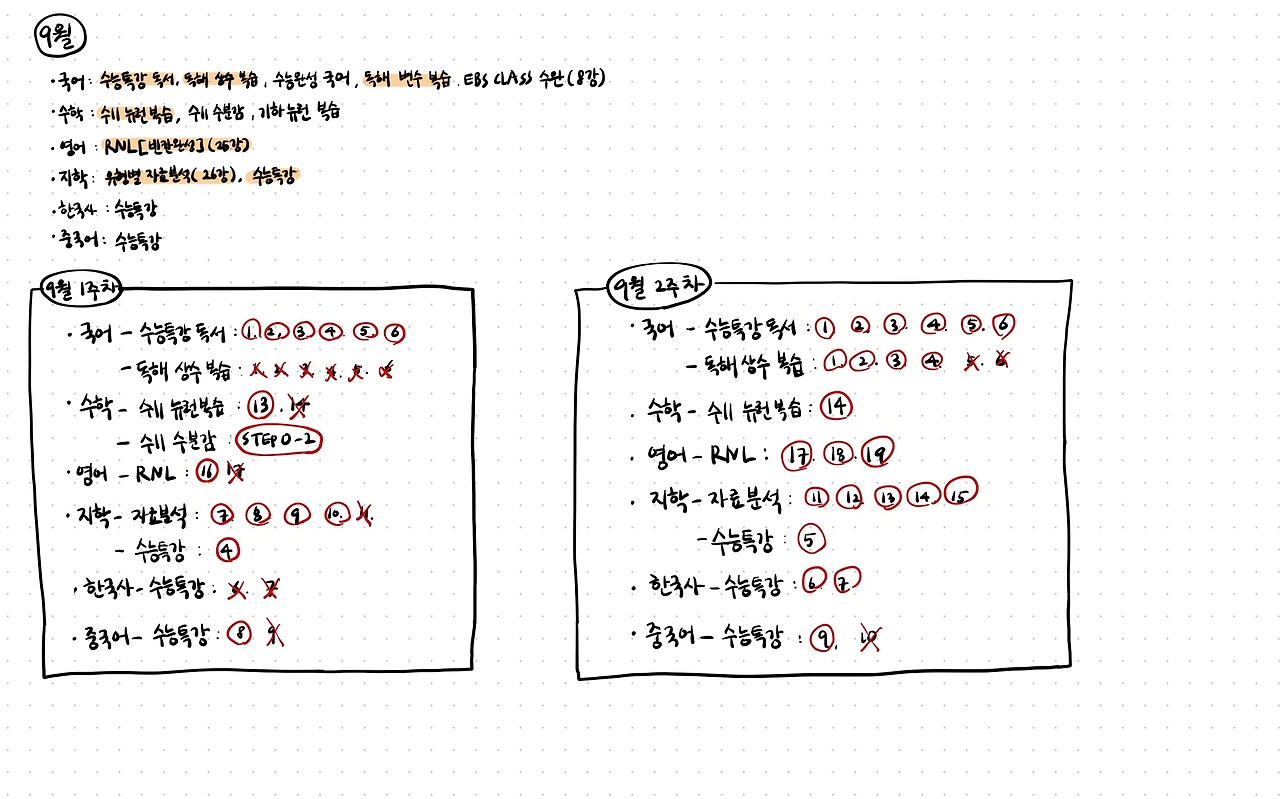 9월
· 국어 : 수능특강 독서, 독해 상수 복습, 수능완성 국어, 독해 변수 복습. EBS CLASS 수완(8강)
· 수학 : 수II 뉴런 복습, 수II 수분감, 기하 뉴런 복습
· 영어 : RNL[빈칸완성](25강)
· 지학 : 유형별 자료분석(26강), 수능특강
· 한국사 : 수능특강
· 중국어 : 수능특강
9월 1주차
· 국어 - 수능특강 독서 : 1. 2. 3. 4. 5. 6
- 독해 상수 복습 : 1. 2. 3. 4. 5. 6
· 수학 - 수II 뉴런복습 : 13. 14
- 수II 수분감 : STEP 0-2
· 영어 - RNL : 16 17
· 지학 - 자료분석 : 7. 8. 9. 10. 11.
- 수능특강 : 4
· 한국사 - 수능특강 : 6. 7
· 중국어 - 수능특강 : 8 9
9월 2주차
· 국어 - 수능특강 독서 : 1 2. 3. 4. 5. 6
- 독해 상수 복습 : 1. 2. 3 4. 5. 6
· 수학 - 수II 뉴런 복습 : 14
· 영어 - RNL : 17. 18. 19
· 지학 - 자료분석 : 11 12. 13 14 15
- 수능특강 : 5
· 한국사 - 수능특강 : 6. 7
· 중국어 - 수능특강 : 9. 10